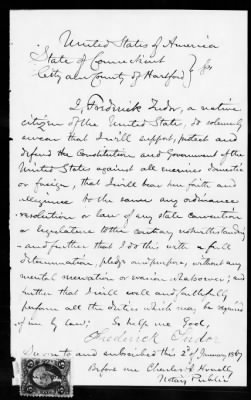 United States of America
State of Connecticut } ss
City and County of Hartford }
I, Frederick Tudor, a native
citizen of the United States, do solemnly
swear that I will support, protect and
defend the Constitution and Government of the
United States against all enemies domestic
or foreign, that I will bear true faith and
allegiance to the same any ordinance
resolution or law of any state convention
or legislature to the contrary notwithstanding
- and further that I do this with a full
determination, pledge and purpose, without any
mental reservation or evasion whatsoever; and
further that I will well and faithfully
perform all the duties which may be required
of me by law; So help me God,
Frederick Tudor
Sworn to and subscribed this 2d of January 1867
Before me Charles
Notary Public